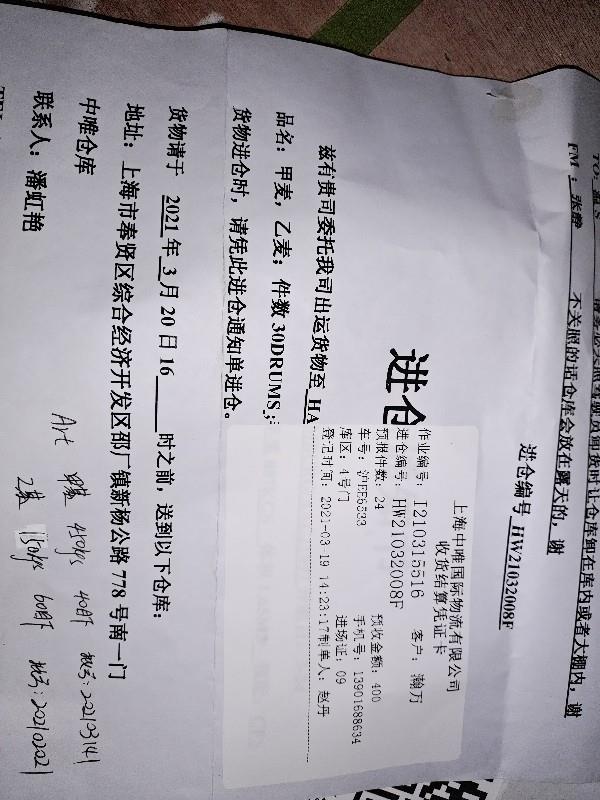 不关照的话仓库会放在露天的，谢
进仓编号 HW21032008F
进仓
兹有贵司委托我司出运货物至 HA
品名：甲麦，乙麦；件数 30DRUMS；
货物进仓时，请凭此进仓通知单进仓。
货物请于 2021 年 3 月 20 日 16 时之前，送到以下仓库：
地址：上海市奉贤区综合经济开发区邵厂镇新杨公路 778 号南一门
中唯仓库
联系人：潘虹艳
上海中唯国际物流有限公司
收货结算凭证卡
作业编号：I210315516 客户：瀚万
进仓编号：HW21032008F
预报件数：24 预收金额：400
车号：沪EE6333 手机号：13901688634
库区：4号门 进场证：09
登记时间：2021-03-19 14:23:17制单人：赵丹